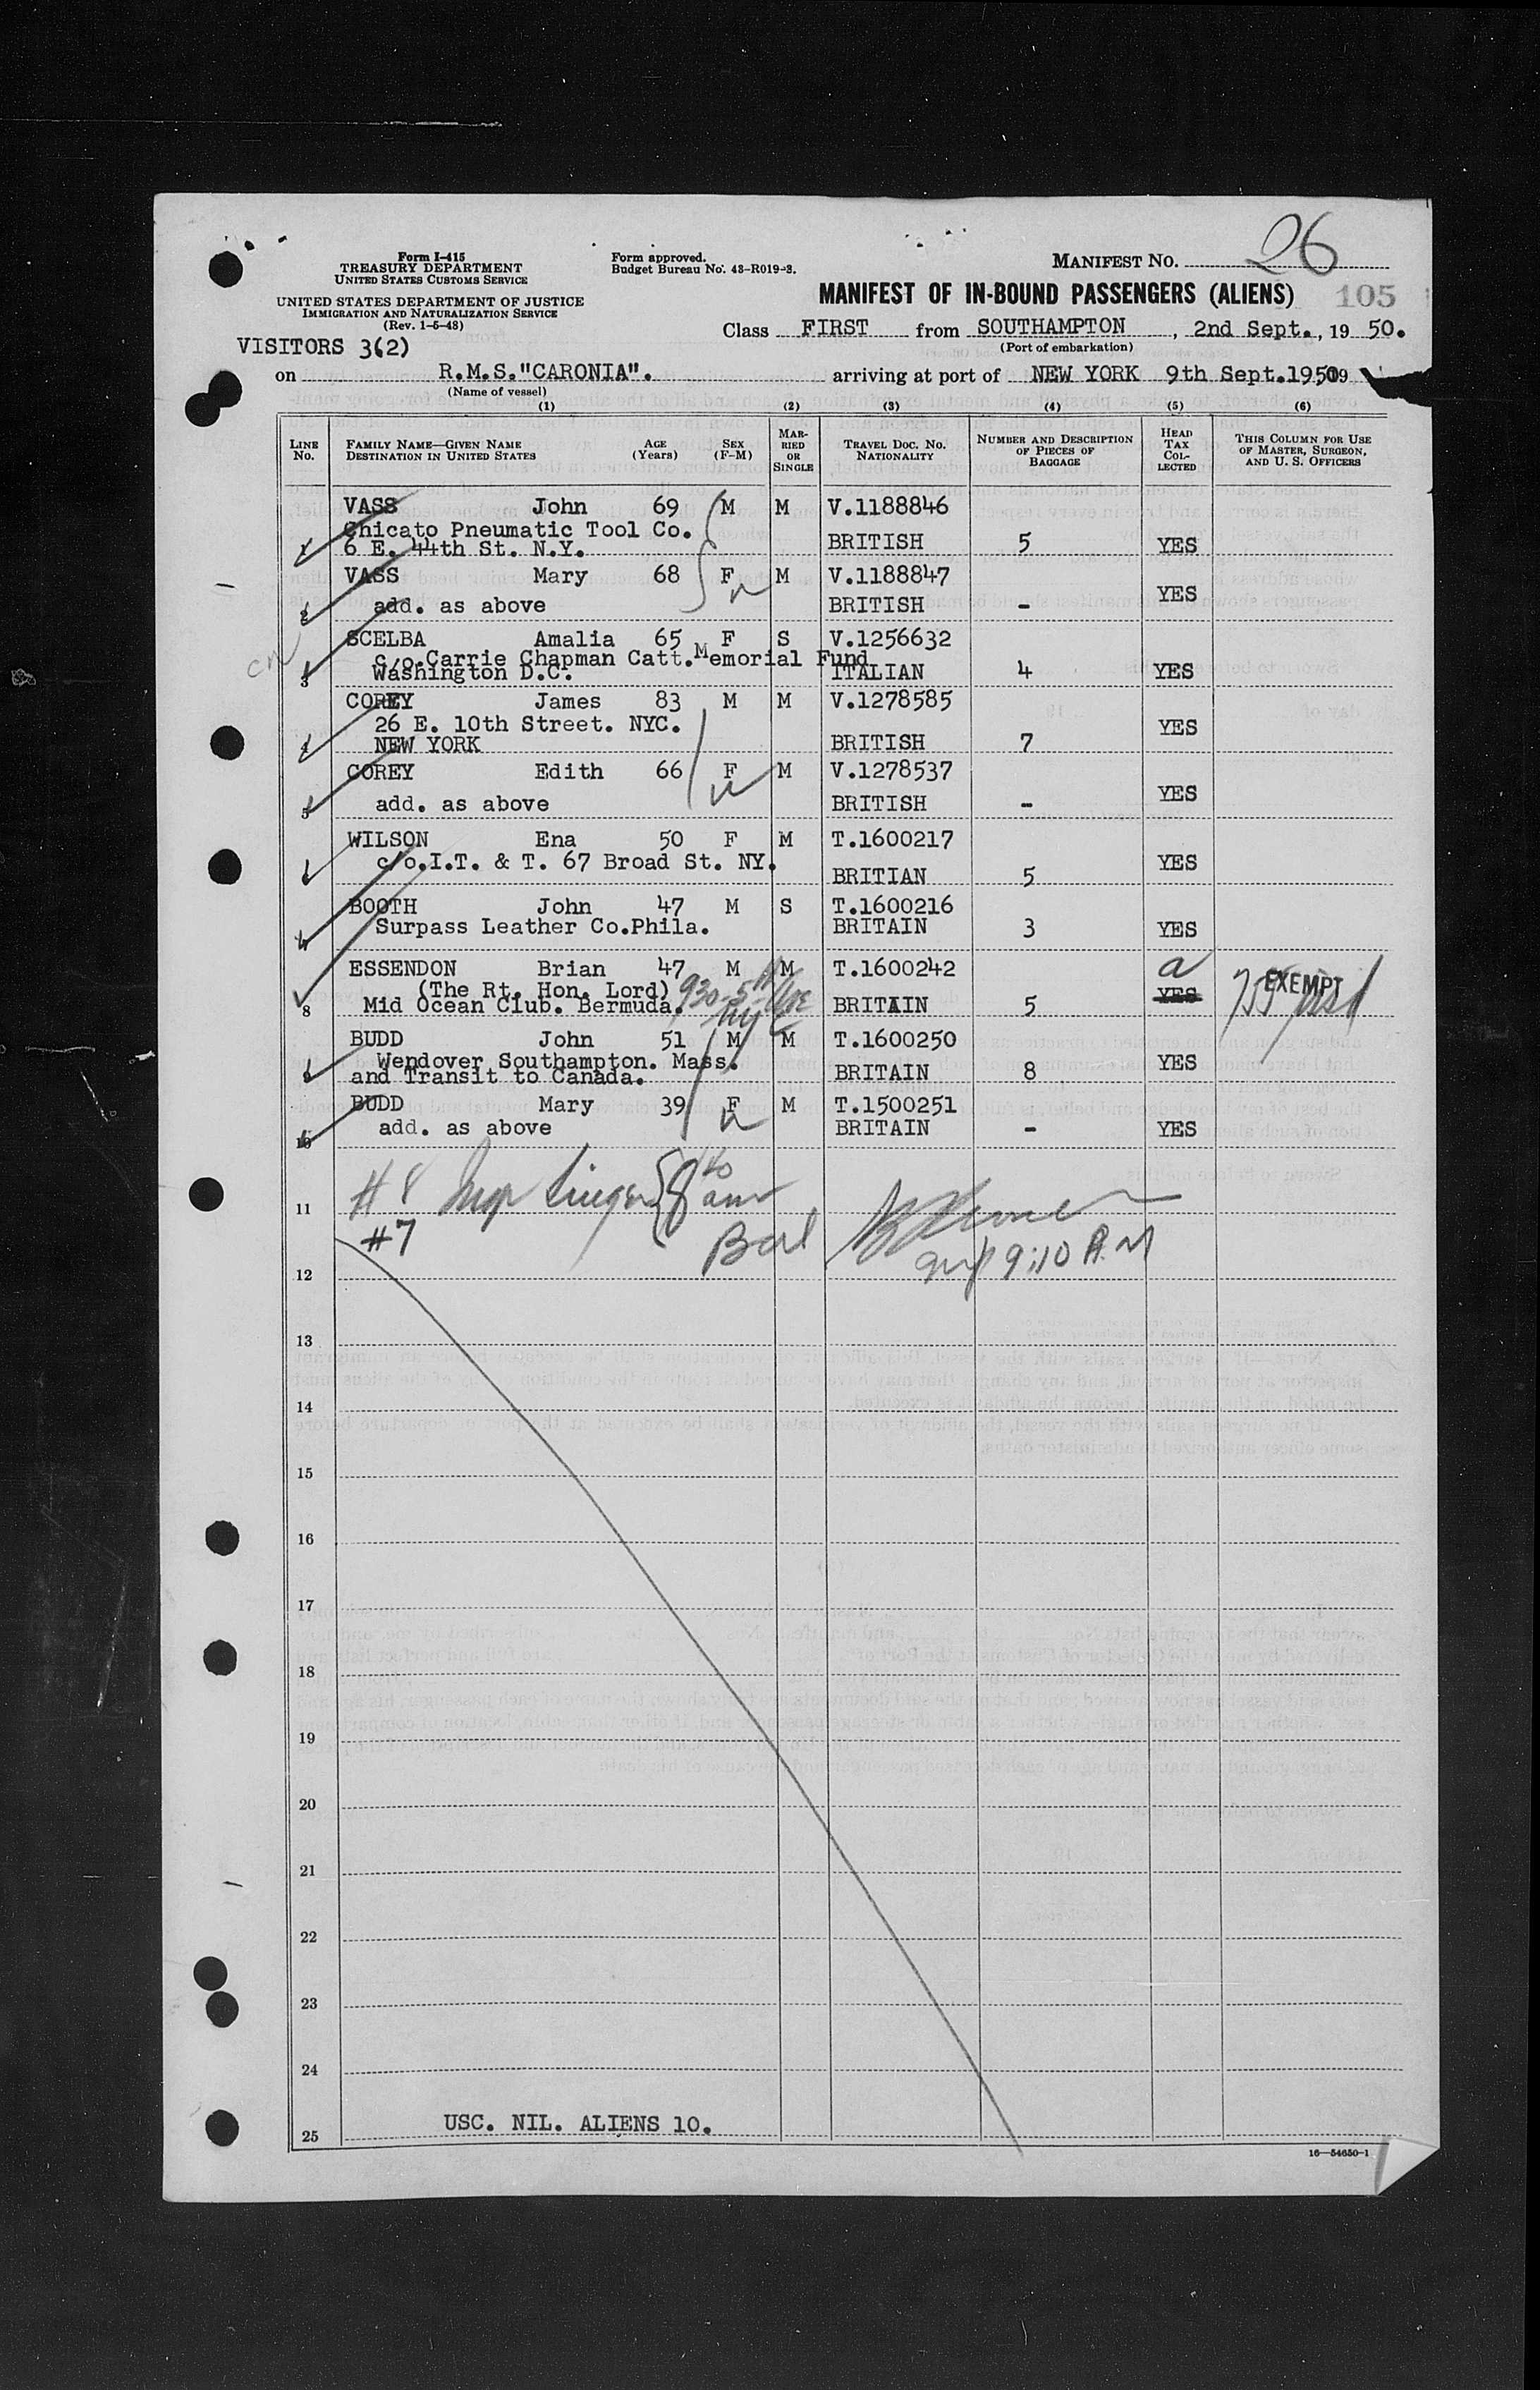 Form I-415
TREASURY DEPARTMENT
UNITED STATES CUSTOMS SERVICE
UNITED STATES DEPARTMENT OF JUSTICE
IMMIGRATION AND NATURALIZATION SERVICE
(Rev. 1-5-48)
Form approved.
Budget Bureau No. 43-R019-3.
MANIFEST NO. 26
MANIFEST OF IN-BOUND PASSENGERS (ALIENS) 105
Class FIRST from SOUTHAMPTON, 2nd Sept., 19 50.
(Port of embarkation)
VISITORS 3(2)
on R.M.S."CARONIA". arriving at port of NEW YORK 9th Sept.1950 19
(Name of vessel)
(1) (2) (3) (4) (5) (6)
LINE No. FAMILY NAME—GIVEN NAME DESTINATION IN UNITED STATES AGE (Years) SEX (F-M) MARRIED OR SINGLE TRAVEL DOC. NO. NATIONALITY NUMBER AND DESCRIPTION OF PIECES OF BAGGAGE HEAD TAX COLLECTED THIS COLUMN FOR USE OF MASTER, SURGEON, AND U. S. OFFICERS
VASS John 69 M M V.1188846
Chicato Pneumatic Tool Co.
1 6 E. 44th St. N.Y. BRITISH 5 YES
VASS Mary 68 F M V.1188847
2 add. as above BRITISH - YES
SCELBA Amalia 65 F S V.1256632
c/o.Carrie Chapman Catt.Memorial Fund
3 Washington D.C. ITALIAN 4 YES
COREY James 83 M M V.1278585
26 E. 10th Street. NYC.
4 NEW YORK BRITISH 7 YES
COREY Edith 66 F M V.1278537
5 add. as above BRITISH - YES
WILSON Ena 50 F M T.1600217
c/o.I.T. & T. 67 Broad St. NY.
BRITIAN 5 YES
BOOTH John 47 M S T.1600216
Surpass Leather Co.Phila. BRITAIN 3 YES
ESSENDON Brian 47 M M T.1600242
(The Rt. Hon. Lord)
8 Mid Ocean Club. Bermuda. BRITAIN 5 YES EXEMPT
BUDD John 51 M M T.1600250
Wendover Southampton. Mass.
9 and Transit to Canada. BRITAIN 8 YES
BUDD Mary 39 F M T.1500251
10 add. as above BRITAIN - YES
#8
11
#7 9:10 A.M
12
13
14
15
16
17
18
19
20
21
22
23
24
25 USC. NIL. ALIENS 10.
16—54650-1